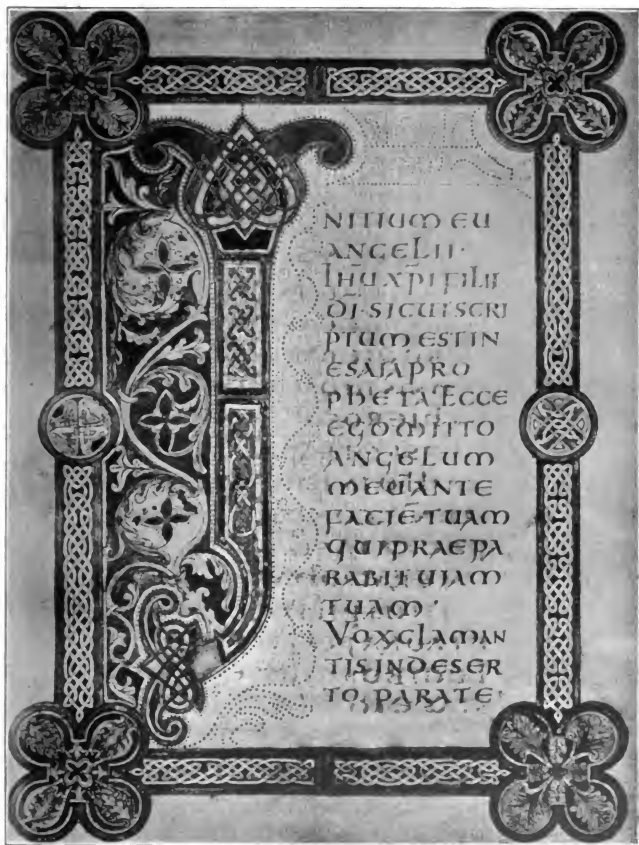 INITIUM EU
ANGELII·
IHU XPI FILII
DI·SICUT SCRI
PTUM EST IN
ESAIA PRO
PHETA ECCE
EGO MITTO
ANGELUM
MEU ANTE
FACIE TUAM
QUI PRAEPA
RABIT UIAM
TUAM·
VOX CLAMAN
TIS IN DESER
TO PARATE·